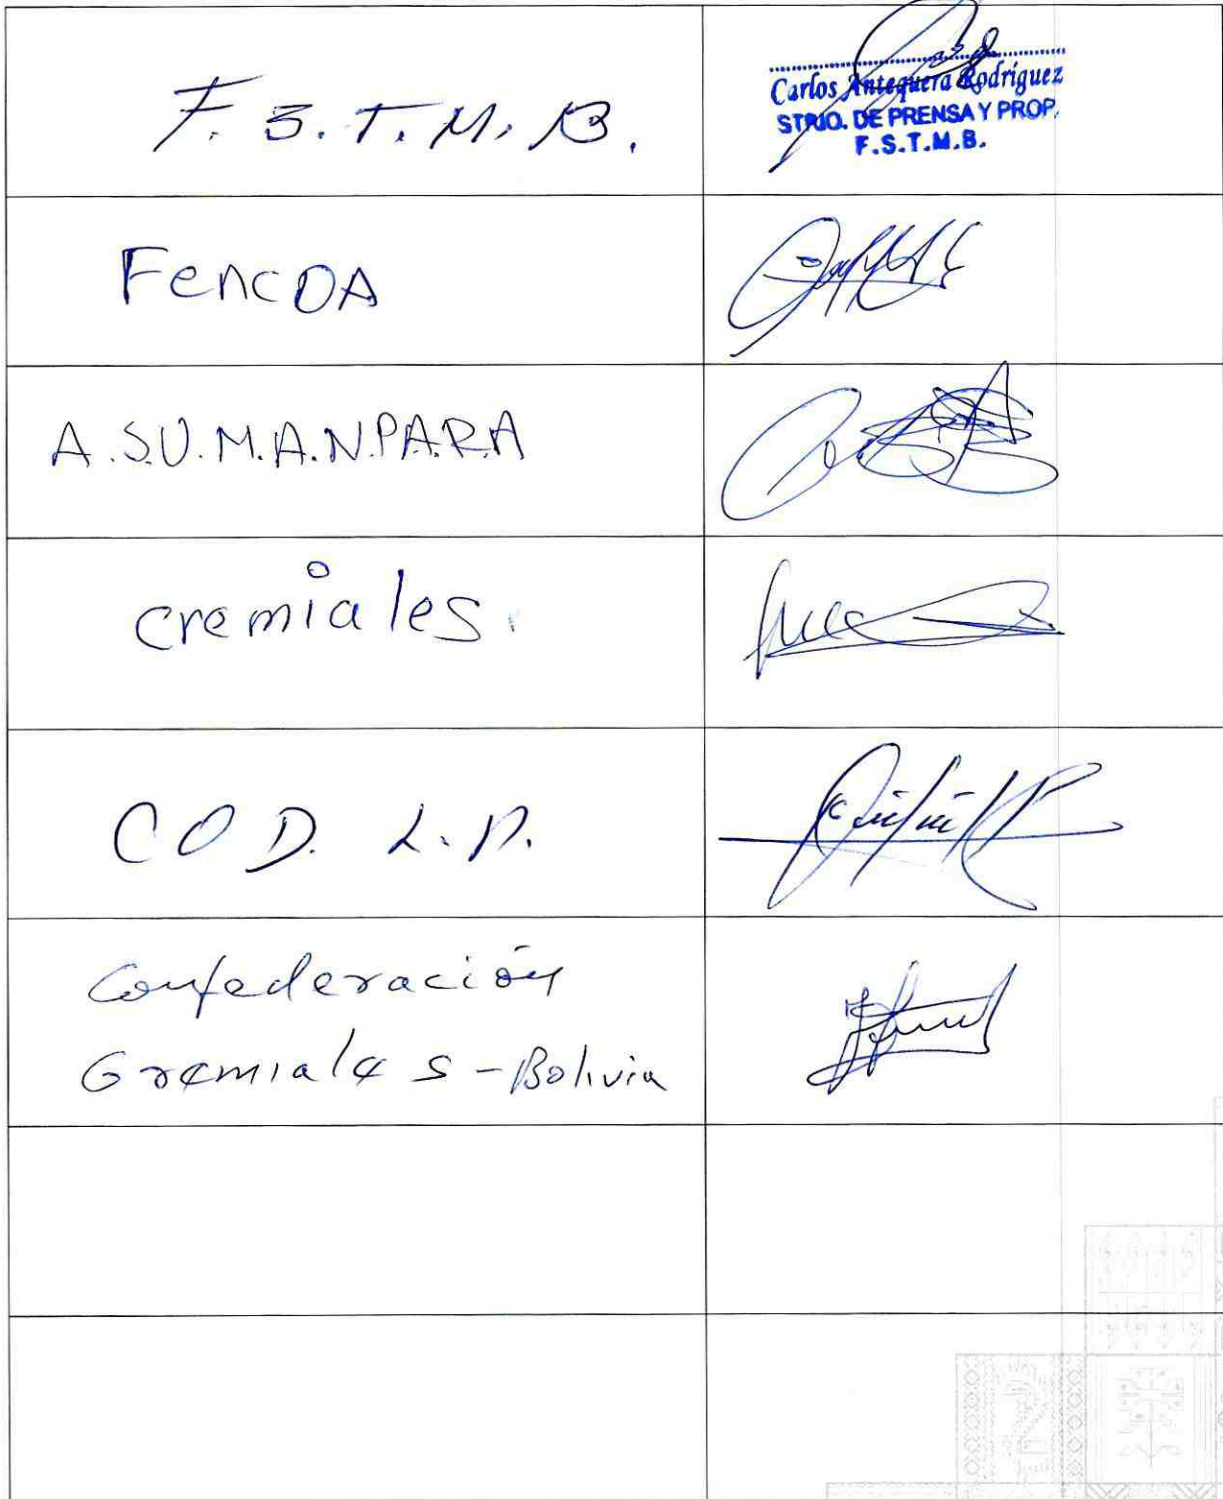 F. S. T. M. B.
Carlos Antequera Rodríguez
STRIO. DE PRENSA Y PROP.
F.S.T.M.B.
FencOA
A.S.U.M.A.N.PA.R.A
cremiales.
C O D. L.P.
Confederación
Gremiales - Bolivia